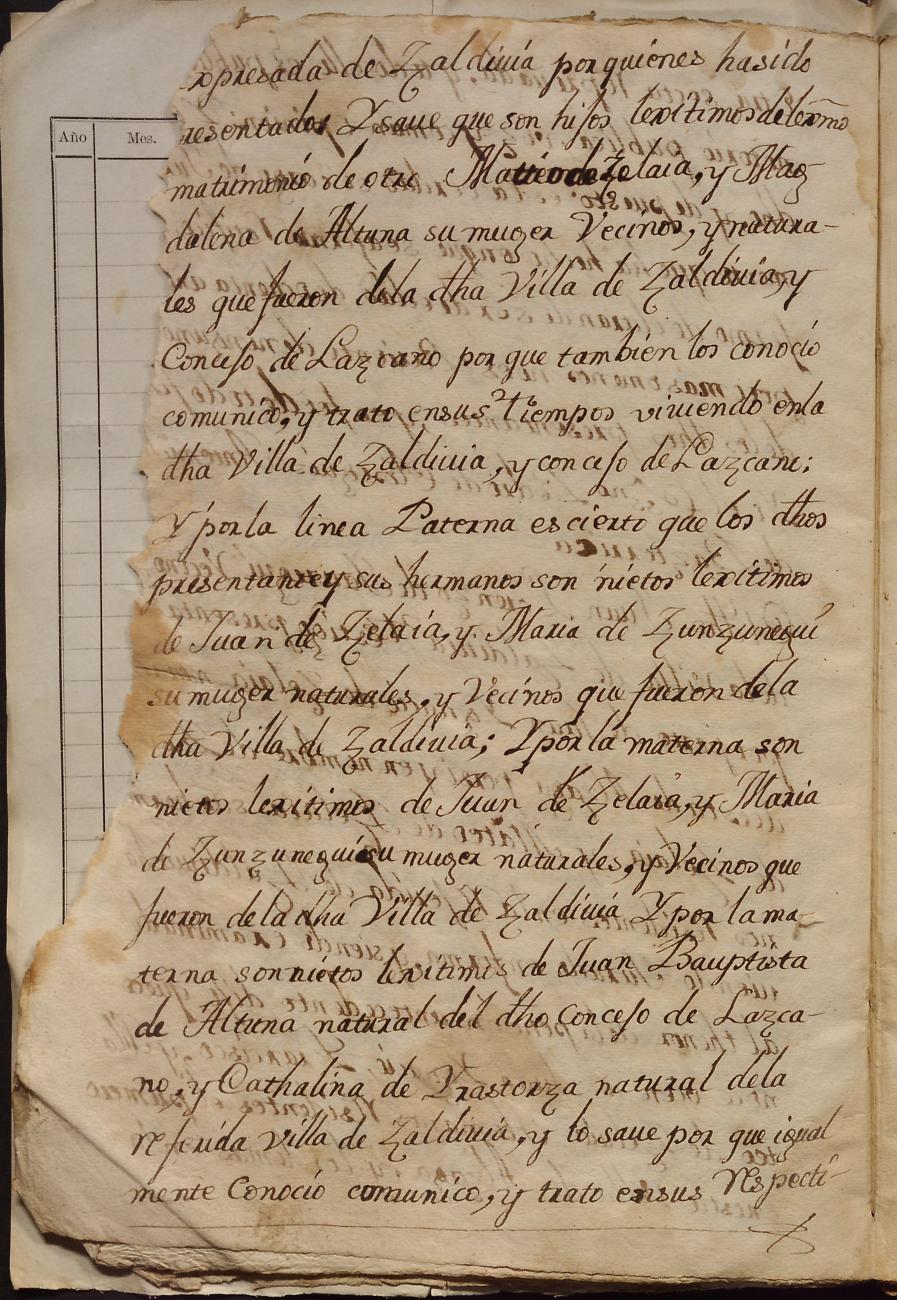 xpresada de Zaldivia por quienes ha sido
Año Mes.
resentados Y save que son hijos lexitimos de lexmo
matrimonio de otro Mateo de Zelaia, y Mag
dalena de Altuna su muger Vecinos, y natura-
les que fueron dela dha Villa de Zaldivia, y
Concejo de Lazcano por que tambien los conocio
comunico, y trato en sus tiempos viviendo en la
dha Villa de Zaldivia, y concejo de Lazcano;
Y por la linea Paterna es cierto que los dhos
presentante y sus hermanos son nietos lexitimos
de Juan de Zelaia, y Maria de Zunzunegui
su muger naturales, y Vecinos que fueron dela
dha Villa de Zaldivia; Y por la materna son
nietos lexitimos de Juan de Zelaia, y Maria
de Zunzunegui su muger naturales, y Vecinos que
fueron dela dha Villa de Zaldivia Y por la ma-
terna son nietos lexitimos de Juan Bauptista
de Altuna natural del dho Concejo de Lazca-
no, y Cathalina de Yrastorza natural dela
referida Villa de Zaldivia, y lo save por que igual
mente Conocio comunico, y trato en sus respecti-